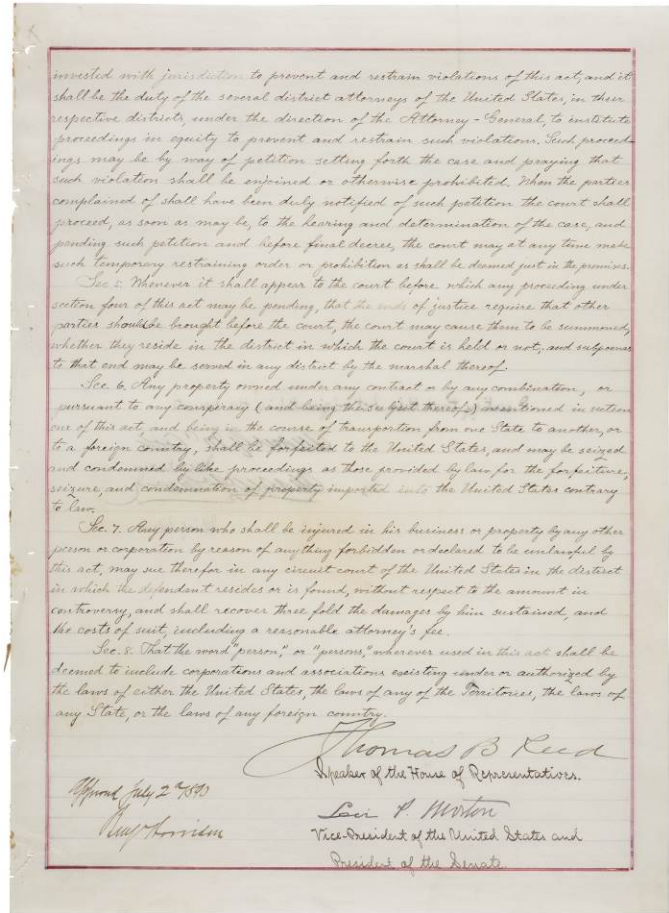 invested with jurisdiction to prevent and restrain violations of this act, and it
shall be the duty of the several district attorneys of the United States, in their
respective districts, under the direction of the Attorney-General, to institute
proceedings in equity to prevent and restrain such violations. Such proceed-
ings may be by way of petition setting forth the case and praying that
such violation shall be enjoined or otherwise prohibited. When the parties
complained of shall have been duly notified of such petition the court shall
proceed, as soon as may be, to the hearing and determination of the case, and
pending such petition and before final decree, the court may at any time make
such temporary restraining order or prohibition as shall be deemed just in the premises.
Sec 5. Whenever it shall appear to the court before which any proceeding under
section four of this act may be pending, that the ends of justice require that other
parties should be brought before the court, the court may cause them to be summoned,
whether they reside in the district in which the court is held or not, and subpoenas
to that end may be served in any district by the marshal thereof.
Sec. 6. Any property owned under any contract or by any combination, or
pursuant to any conspiracy (and being the subject thereof) mentioned in section
one of this act, and being in the course of transportion from one State to another, or
to a foreign country, shall be forfeited to the United States, and may be seized
and condemned by like proceedings as those provided by law for the forfeiture,
seizure, and condemnation of property imported into the United States contrary
to law.
Sec. 7. Any person who shall be injured in his business or property by any other
person or corporation by reason of anything forbidden or declared to be unlawful by
this act, may sue therefor in any circuit court of the United States in the district
in which the defendant resides or is found, without respect to the amount in
controversy, and shall recover three fold the damages by him sustained, and
the costs of suit, including a reasonable attorney's fee.
Sec. 8. That the word "person," or "persons," wherever used in this act shall be
deemed to include corporations and associations existing under or authorized by
the laws of either the United States, the laws of any of the Territories, the laws of
any State, or the laws of any foreign country.
Thomas B Reed
Speaker of the House of Representatives.
Approved July 2d 1890
Benj Harrison
Levi P. Morton
Vice-President of the United States and
President of the Senate.